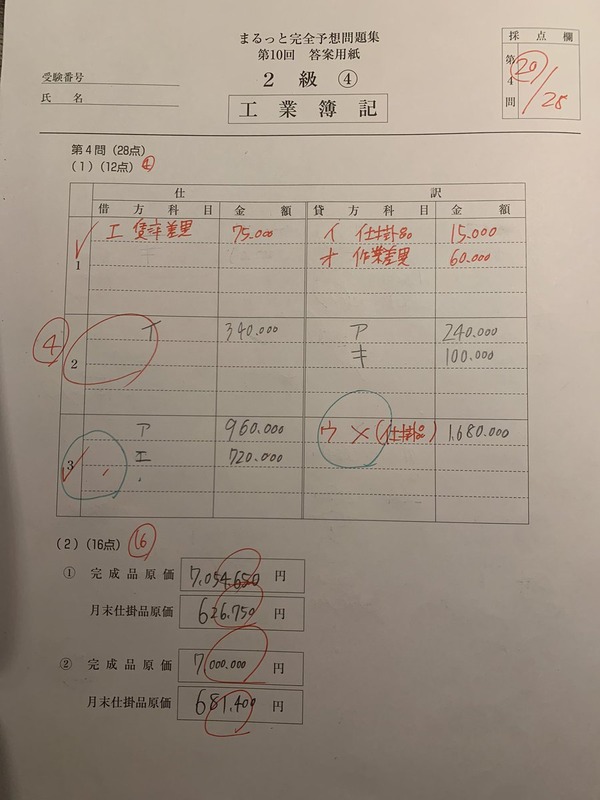 まるっと完全予想問題集
第10回 答案用紙
2級 ④
工業簿記
採点欄
第4問
20/28
受験番号
氏名
第4問(28点)
(1)(12点) 4
仕訳
借方科目 金額 貸方科目 金額
1 エ 賃率差異 75.000 イ 仕掛品 15.000
オ 作業差異 60.000
4
2 イ 340.000 ア 240.000
キ 100.000
3 ア 960.000 ウ (仕掛品) 1,680.000
エ 720.000
(2)(16点) 16
① 完成品原価 7,054.650 円
月末仕掛品原価 626.750 円
② 完成品原価 7000.000 円
月末仕掛品原価 681.400 円